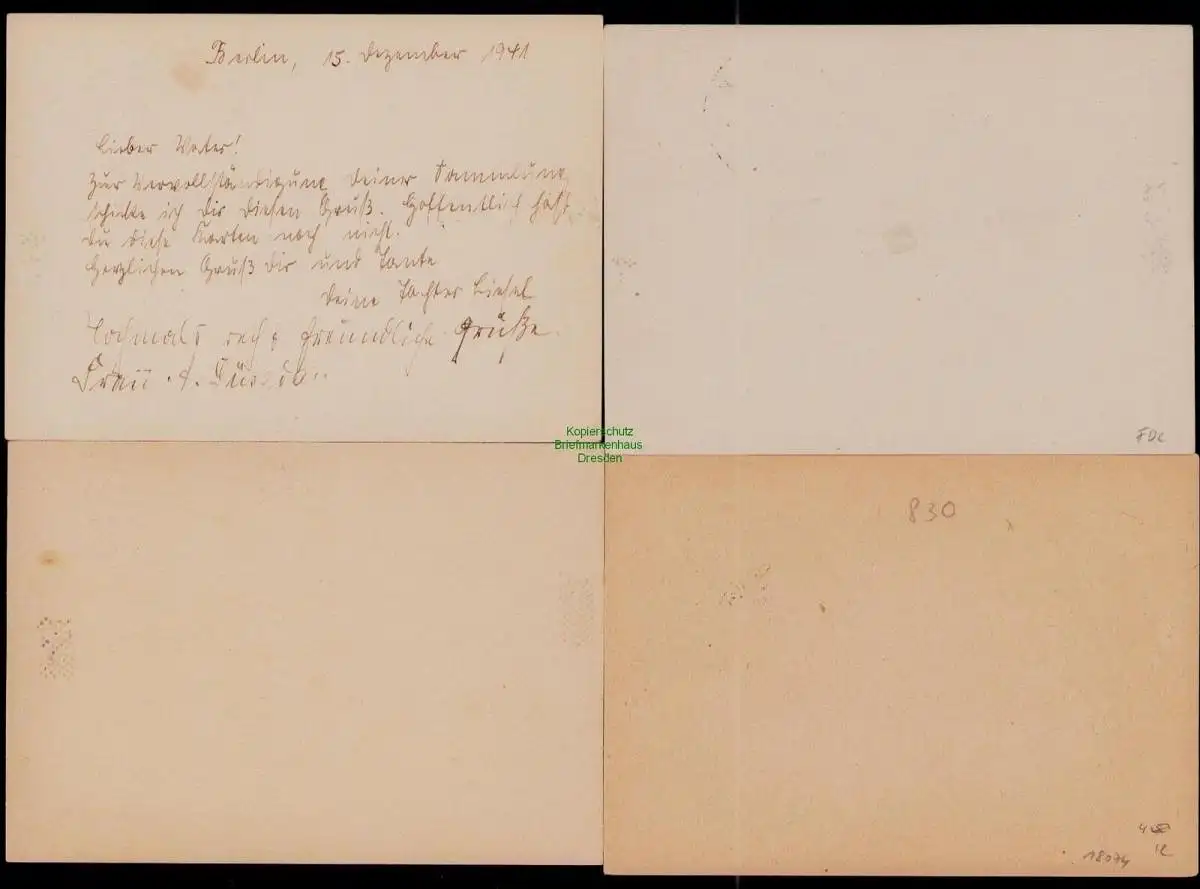 Berlin, 15. Dezember 1941
Lieber Vater!
Zur Vervollständigung deiner Sammlung
schicke ich dir diesen Gruß. Hoffentlich hast
du diese Karten noch nicht.
Herzlichen Gruß dir und Tante
deine Tochter Liesel
freundliche Grüße.
Frau A.
Kopierschutz
Briefmarkenhaus
Dresden
FDC
830
18074